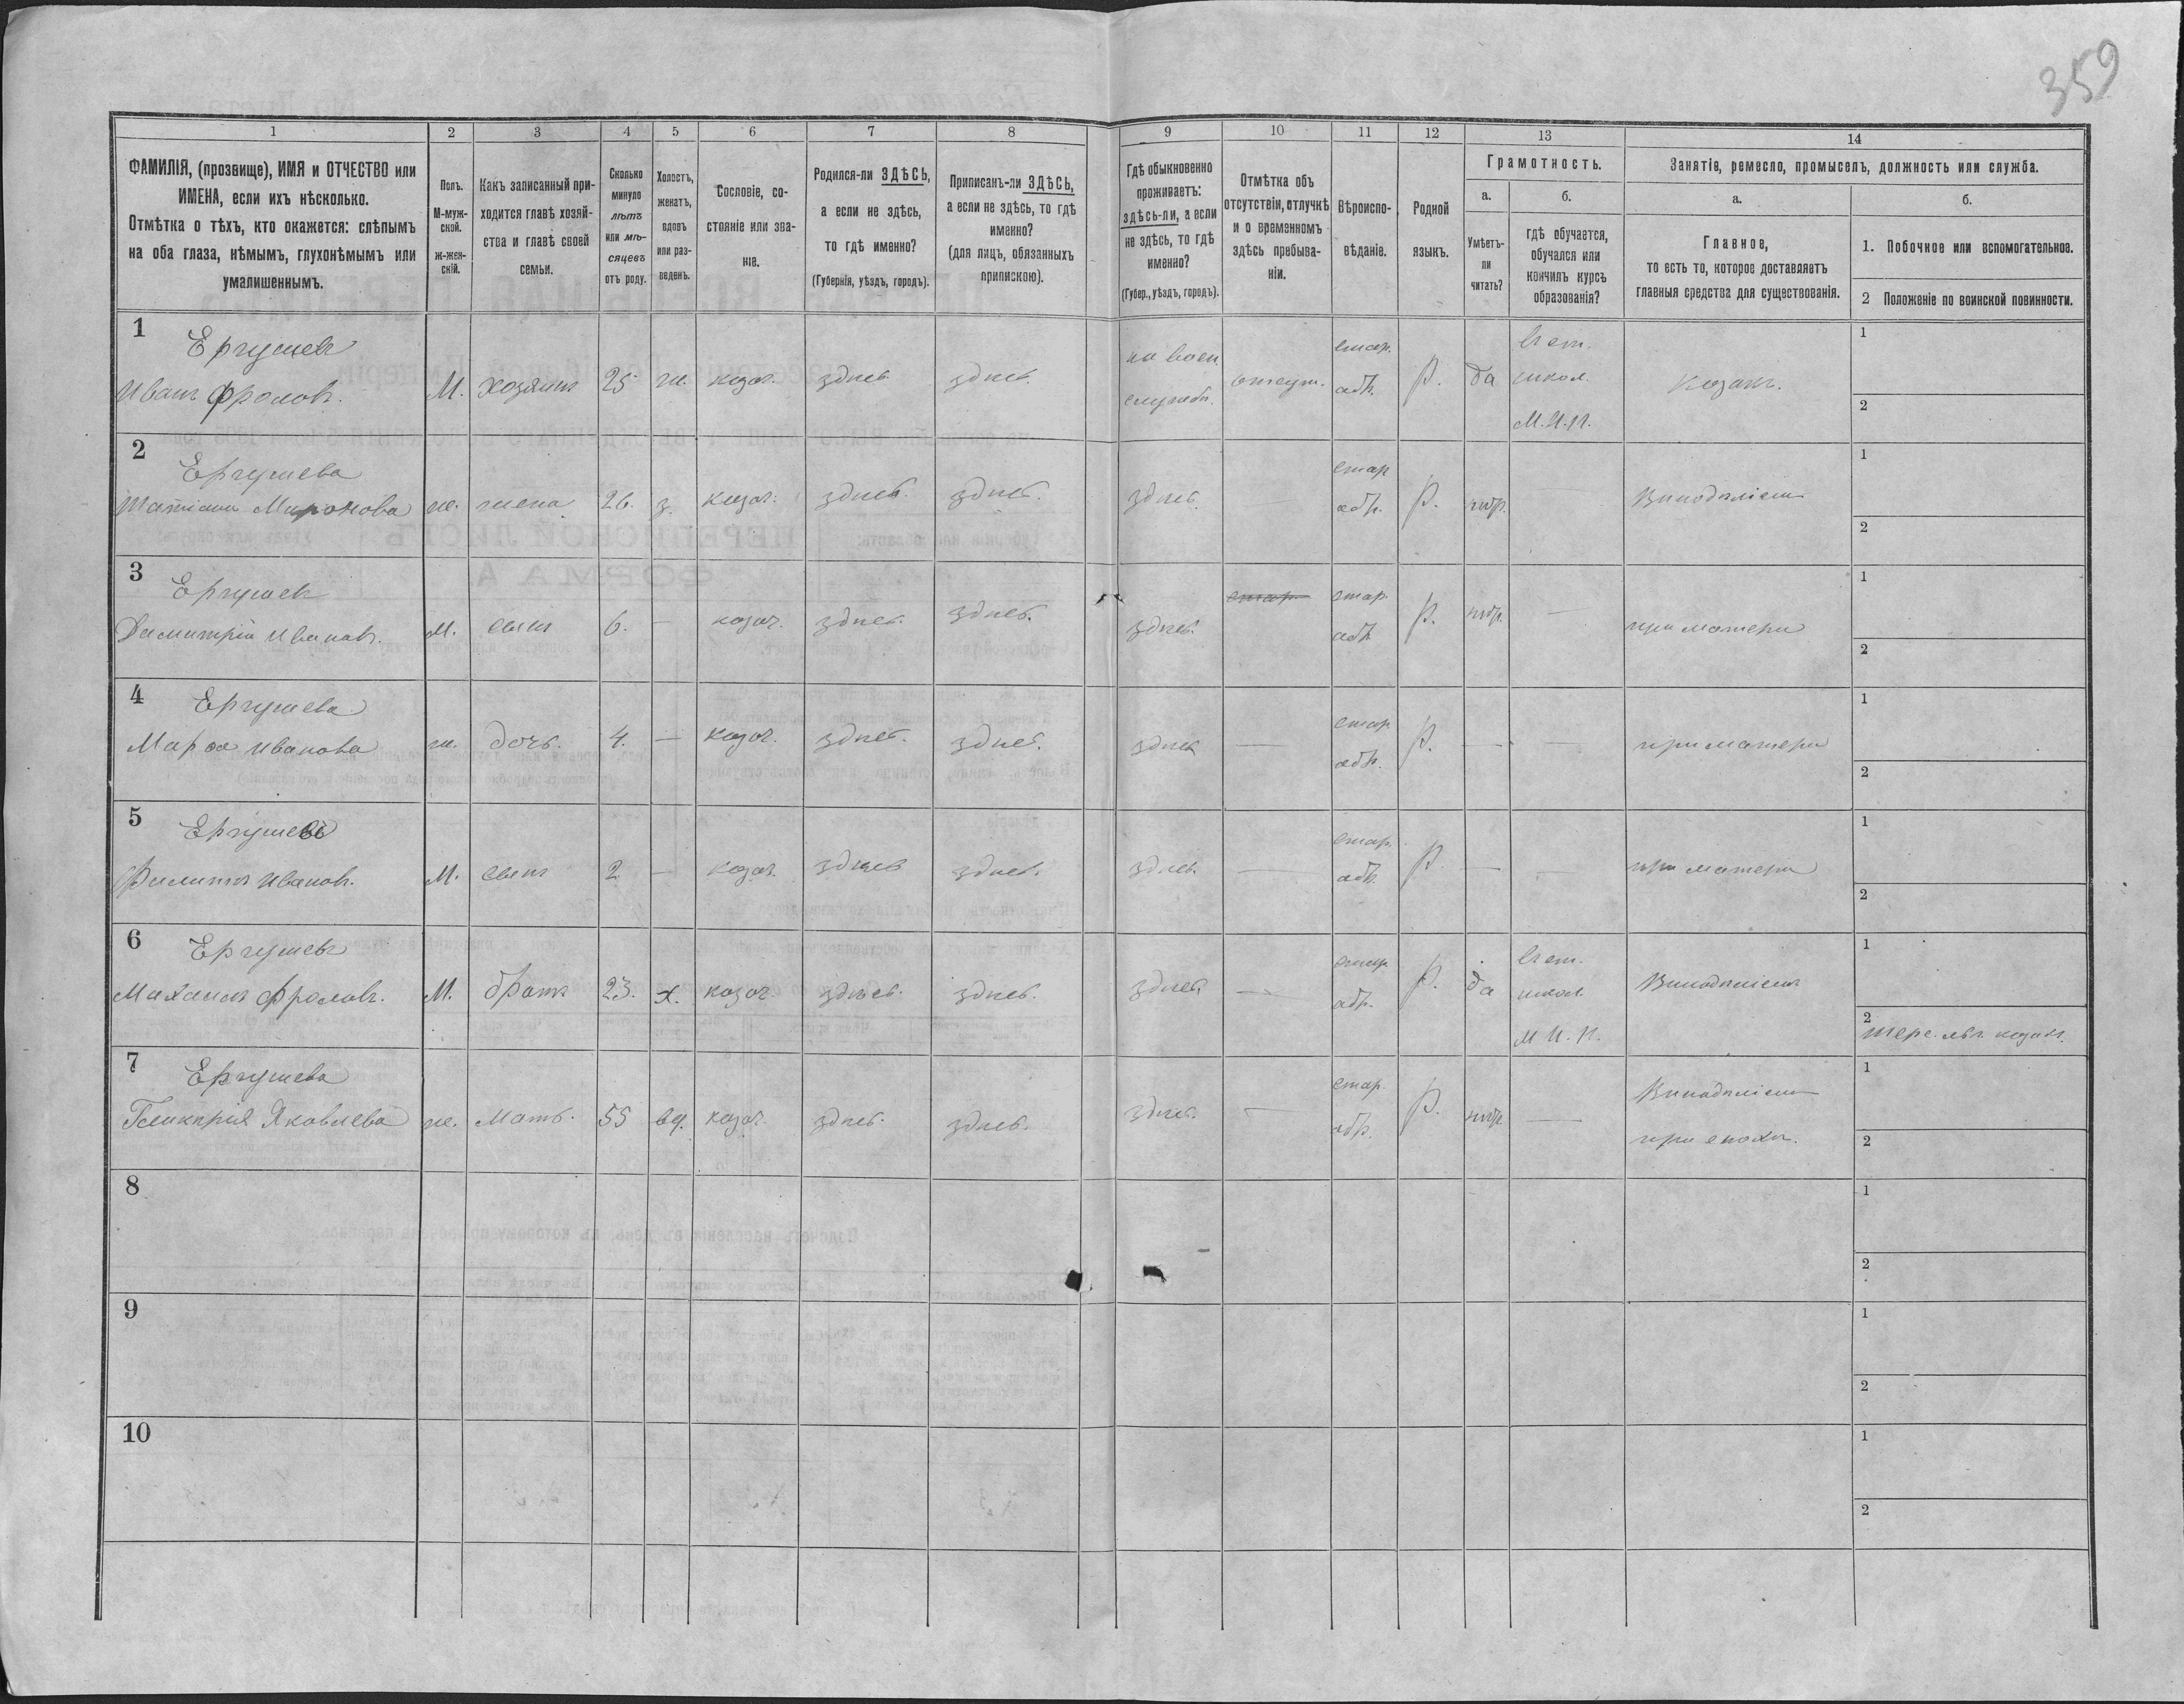 359
1 2 3 4 5 6 7 8 9 10 11 12 13 14
ФАМИЛІЯ, (прозвище), ИМЯ и ОТЧЕСТВО или
ИМЕНА, если ихъ нѣсколько.
Отмѣтка о тѣхъ, кто окажется: слѣпымъ
на оба глаза, нѣмымъ, глухонѣмымъ или
умалишеннымъ.
Полъ.
М-муж-
ской.
ж-жен-
скій.
Какъ записанный при-
ходится главѣ хозяй-
ства и главѣ своей
семьи.
Сколько
минуло
лѣтъ
или мѣ-
сяцевъ
отъ роду.
Холостъ,
женатъ,
вдовъ
или раз-
веденъ.
Сословіе, со-
стояніе или зва-
ніе.
Родился-ли ЗДѢСЬ,
а если не здѣсь,
то гдѣ именно?
(Губернія, уѣздъ, городъ).
Приписанъ-ли ЗДѢСЬ,
а если не здѣсь, то гдѣ
именно?
(для лицъ, обязанныхъ
припискою).
Гдѣ обыкновенно
проживаетъ:
здѣсь-ли, а если
не здѣсь, то гдѣ
именно?
(Губер., уѣздъ, городъ).
Отмѣтка объ
отсутствіи, отлучкѣ
и о временномъ
здѣсь пребыва-
ніи.
Вѣроиспо-
вѣданіе.
Родной
языкъ.
Грамотность.
а.
Умѣетъ-
ли
читать?
б.
гдѣ обучается,
обучался или
кончилъ курсъ
образованія?
Занятіе, ремесло, промыселъ, должность или служба.
а.
Главное,
то есть то, которое доставляетъ
главныя средства для существованія.
б.
1. Побочное или вспомогательное.
2 Положеніе по воинской повинности.
1
Ергушевъ
Иванъ Фроловъ.
М. хозяинъ 25 же. козач. здѣсь. здѣсь.
на воен.
службѣ.
отсут.
стар.
обр.
Р. да
в ст.
школ.
М.Н.П.
Козакъ.
1
2
2
Ергушева
Татіана Миронова
же. жена 26. з. козач. здѣсь. здѣсь. здѣсь. —
стар
обр.
Р. нѣтъ. —
Винодѣліемъ
1
2
3
Ергушевъ
Димитрій Ивановъ.
М. сынъ 6. — козач. здѣсь. здѣсь. здѣсь.
стар.
стар.
обр.
Р. нѣтъ. —
при матери
1
2
4
Ергушева
Марѳа Иванова
же. дочь. 4. — козач. здѣсь. здѣсь. здѣсь —
стар
обр.
Р. — —
при матери
1
2
5
Ергушевъ
Филиппъ Ивановъ.
М. сынъ 2 — козач. здѣсь здѣсь. здѣсь. —
стар.
обр.
Р — —
при матери
1
2
6
Ергушевъ
Михаилъ Фроловъ.
М. братъ 23. х. козач. здѣсь. здѣсь. здѣсь —
стар
обр.
Р. да
в ст.
школ.
М Н. П.
Винодѣліемъ
1
2
7
Ергушева
Яковлева
же. мать. 55 вд. козач. здѣсь. здѣсь. здѣсь. —
стар.
обр.
Р. нѣтъ —
Винодѣліемъ
1
2
8
1
2
9
1
2
10
1
2